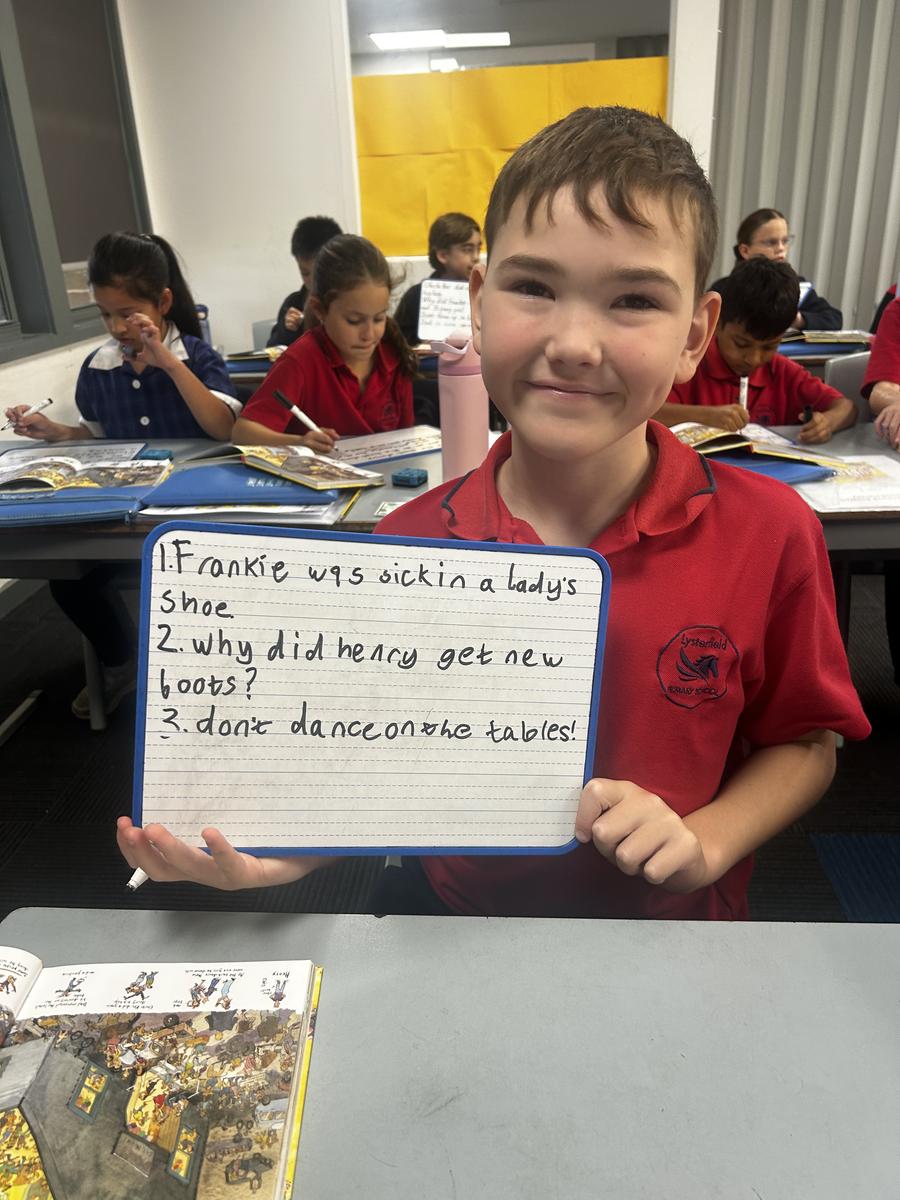 1. Frankie was sick in a lady's
shoe.
2. why did henry get new
boots?
3. don't dance on the tables!
Lysterfield
PRIMARY SCHOOL
Henry